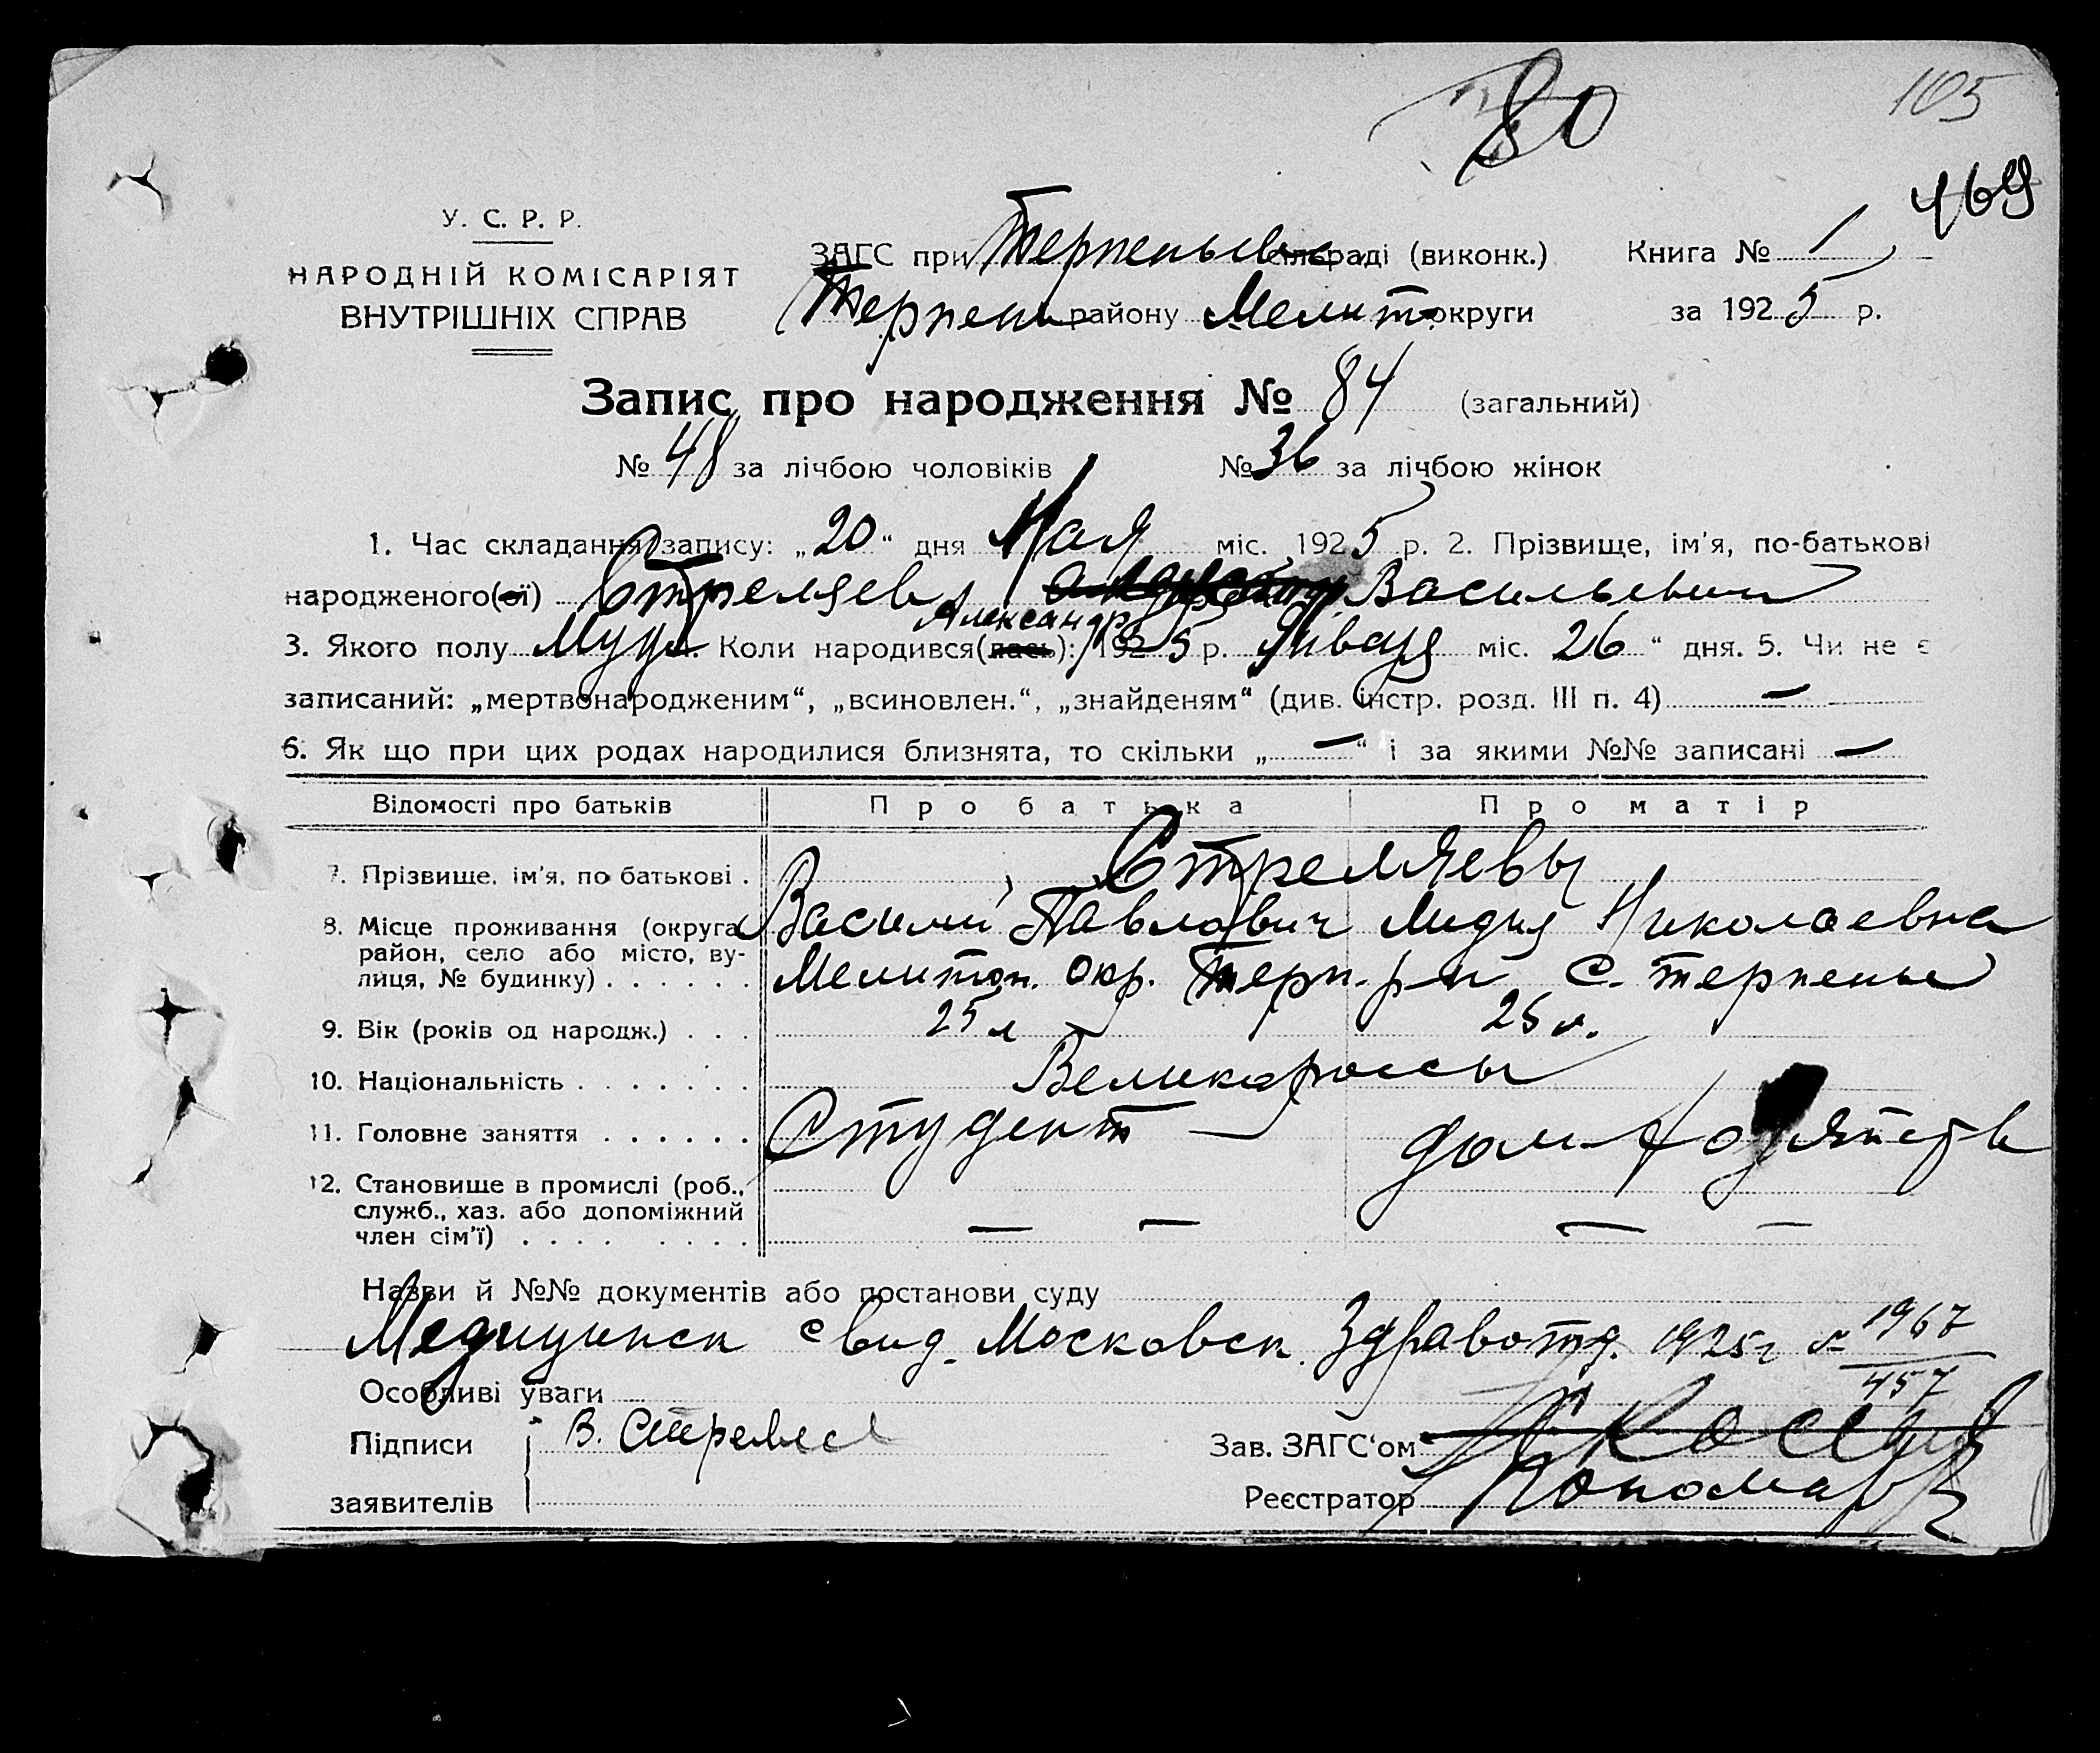 80
105
469
У. С. Р. Р.
НАРОДНІЙ КОМІСАРІЯТ
ВНУТРІШНІХ СПРАВ
ЗАГС при Терпеньев сільраді (виконк.) Книга № 1
Терпен районy Мелит округи за 1925 р.
Запис про народження № 84 (загальний)
№ 48 за лічбою чоловіків № 36 за лічбою жінок
1. Час складання запису: „20“ дня Мая міс. 1925 р. 2. Прізвище, ім'я, по-батькові
народженого(ої) Стреляев Васильевич
Александр
3. Якого полу Муж. Коли народився(лась): 1925 р. Января міс. 26“ дня. 5. Чи не є
записаний: „мертвонародженим“, „всиновлен.“, „знайденям“ (див. інстр. розд. III п. 4) —
6. Як що при цих родах народилися близнята, то скільки „—“ і за якими №№ записані —
Відомості про батьків Про батька Про матір
7. Прізвище, ім'я, по батькові . Стремляевы
Василий Павлович Лидия Николаевна
8. Місце проживання (округа
район, село або місто, ву-
лиця, № будинку) . . . . . . Мелитоп. окр. Терп. р-н с. терпенье
9. Вік (років од народж.) . . . 25 л 25 л.
10. Національність . . . . . . . Великороссы
11. Головне заняття . . . . . . Студент — дом.
12. Становище в промислі (роб.,
служб., хаз. або допоміжний
член сім'ї) . . . . . . . . — — — —
Назви й №№ документів або постанови суду
Медицинск свид. Московск. Здравотд. 1925 г № 1967
457
Особливі уваги
Підписи В.
заявителів
Зав. ЗАГС'ом
Реєстратор